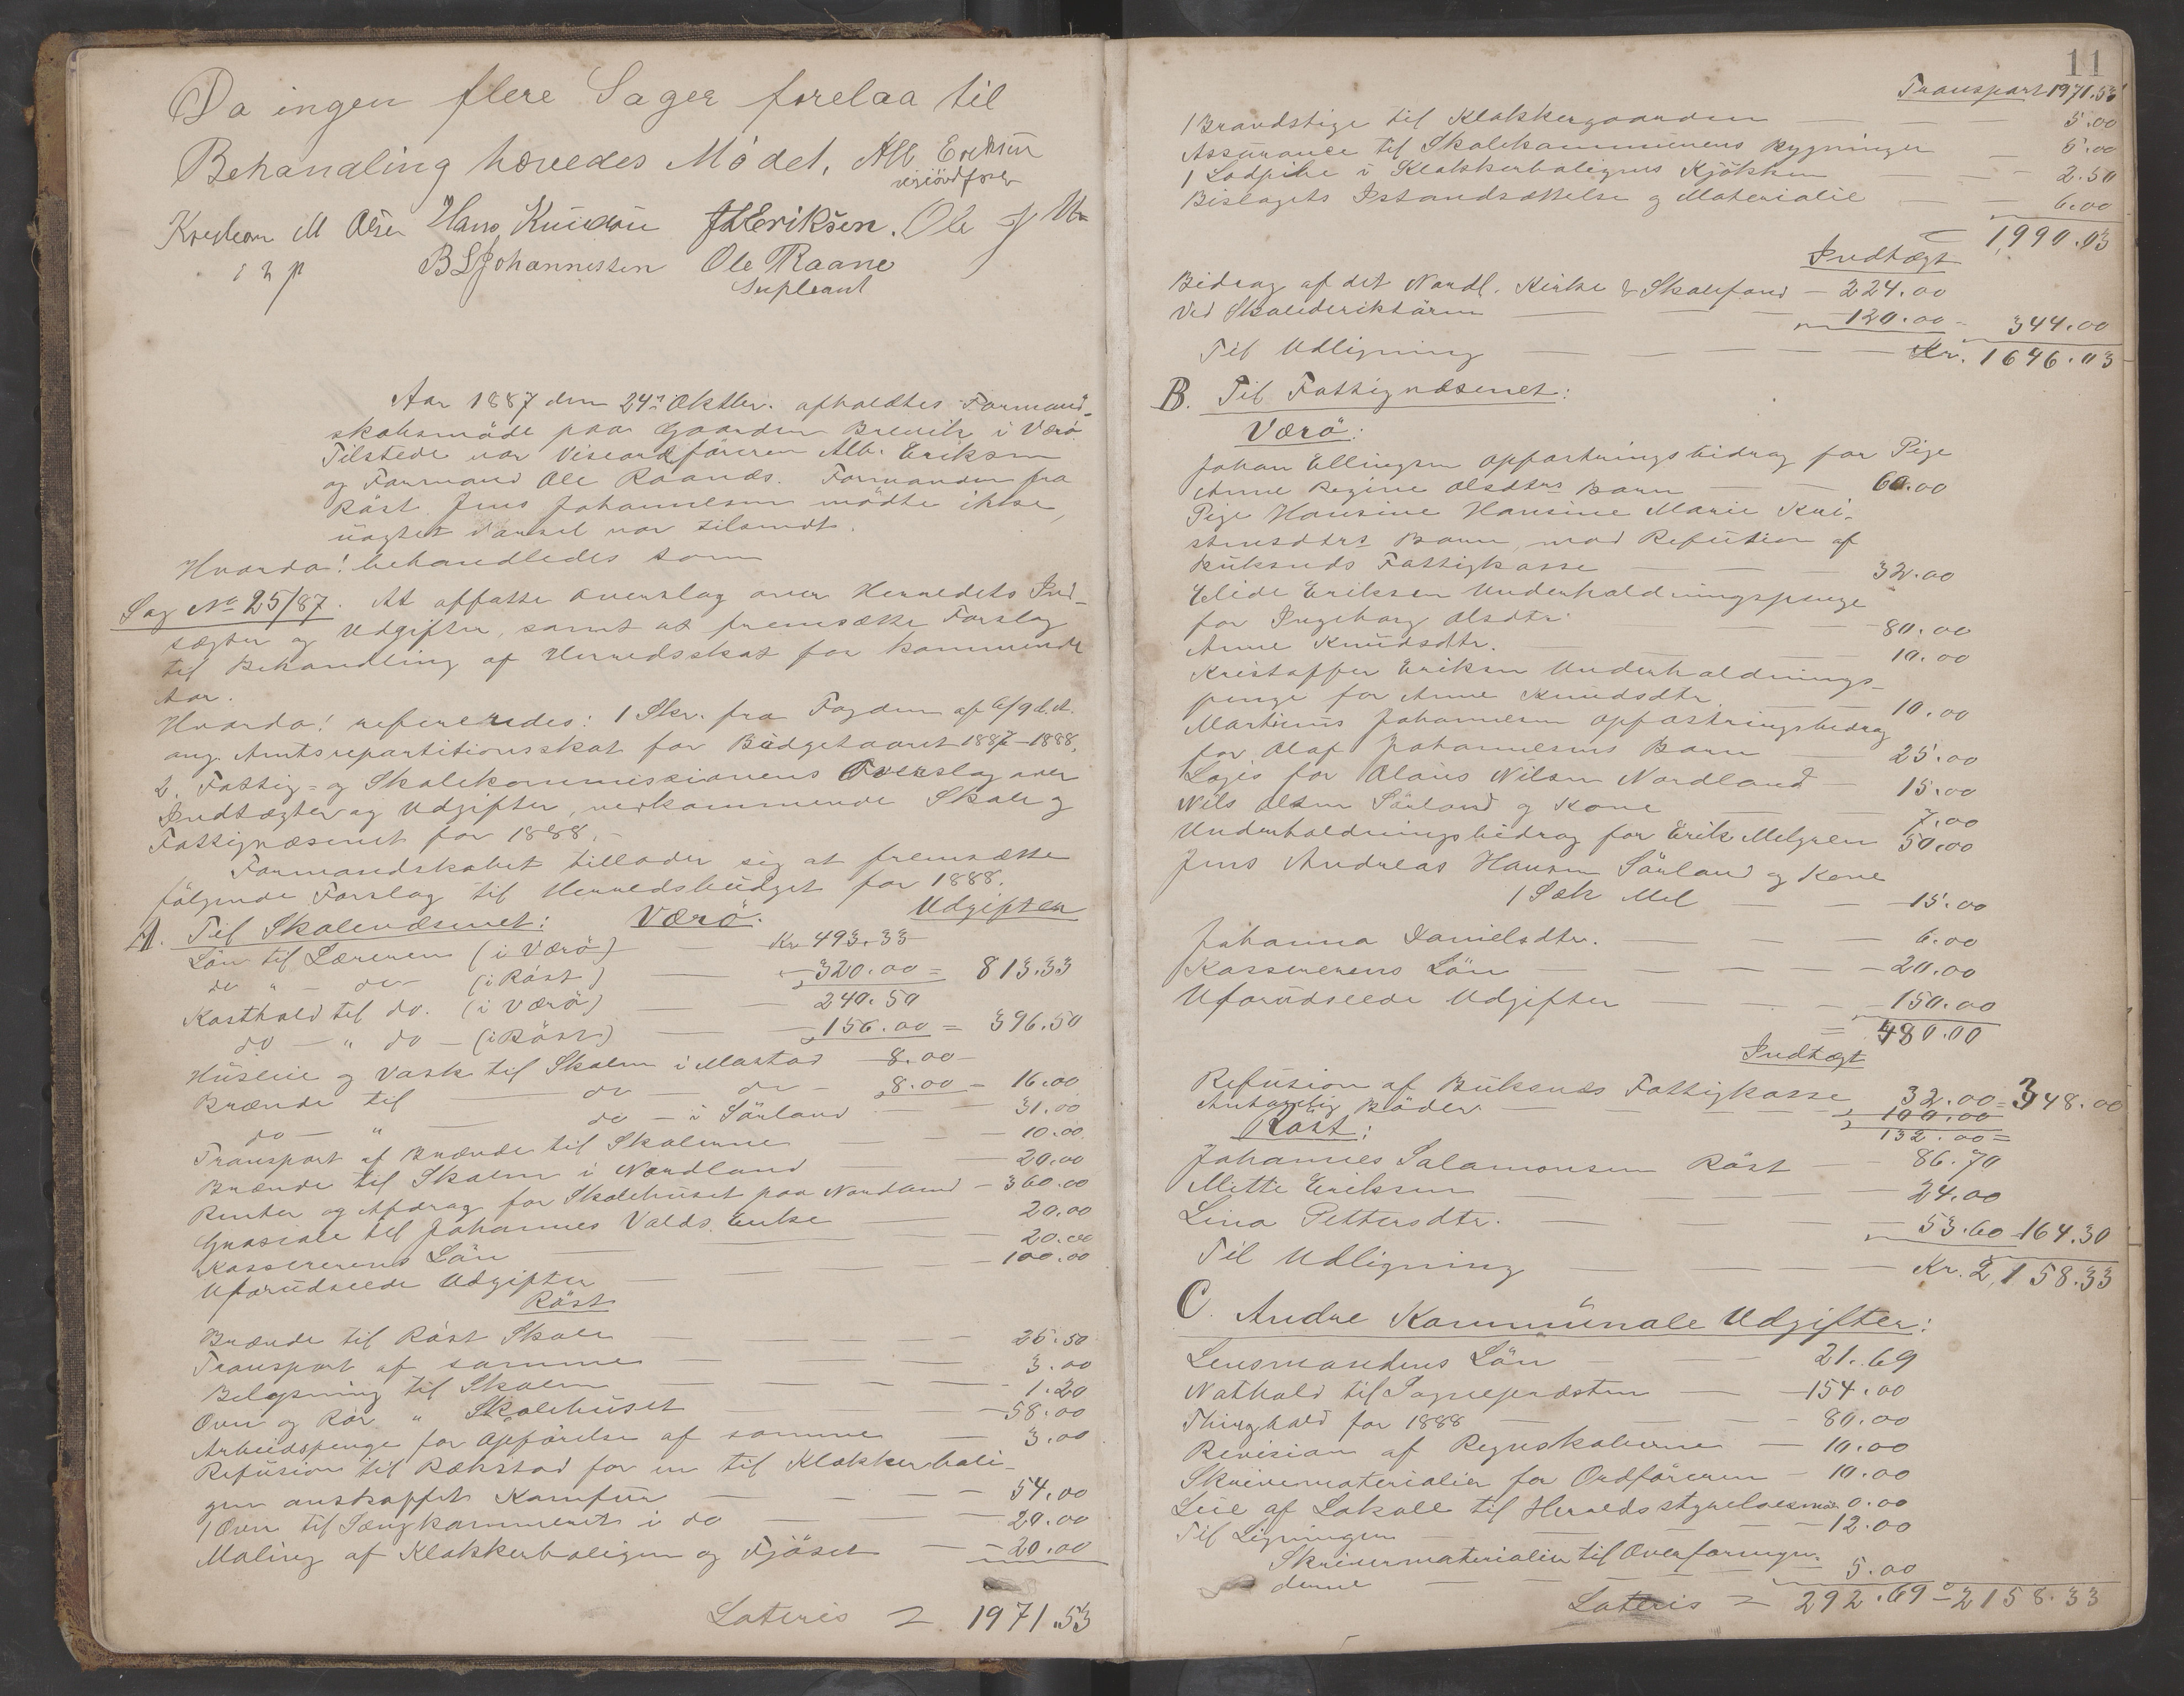 Da ingen flere Sager forelaa til
Behandling hævedes Mødet, Alb Eriksen
viseordfører
Kristian M Olsen Hans Knudsen J A Eriksen. Ole J
B L Johannessen Ole Raanes
Supleant
Aar 1887 den 24de Oktbr. afholdtes Formand-
skabsmöde paa Gaarden Brevik i Værö
Tilstede var Viseordföreren Alb. Eriksen
og Formand Ole Raanæs. Formanden fra
Röst Jens Johannesen mödte ikke,
uagtet Varsel var tilsendt.
Hvorda! behandledes som
Sag No 25/87. At affatte Overslag over Herredets Ind-
tægter og Udgifter, samt at fremsætte Forslag
til Behandling af Herredsskat for kommende
Aar.
Hvorda! refereredes: 1 Skr. fra Fogden af 6/9 d.A.
ang. Amtsrepartitionsskat for Budgetaaret 1887-1888.
2. Fattig- og Skolekommissionens Overslag over
Indtægter og Udgifter, vedkommende Skole og
Fattigvæsenet for 1888.
Formandskabet tillader sig at fremsætte
fölgende Forslag til Herredsbudget for 1888.
A. Til Skolevæsenet: Værö. Udgifter
Lön til Læreren (i Værö) — Kr 493.33
do " — do — (i Röst) — 320.00 = 813.33
Kosthold til do. (i Værö) — 240.50
do — " do — (i Röst) — 156.00 = 396.50
Husleie og Vask til Skolen i Mostad 8.00
Brænde til — do — do — 8.00 = 16.00
do — " — do — i Sörland — 31.00
Transport af Brænde til Skolerne — 10.00
Brænde til Skolen i Nordland — 20.00
Renter og Afdrag for Skolehuset paa Nordland — 360.00
Gratiale til Johannes Valds. Enke — 20.00
Kassererens Lön — 20.00
Uforudseede Udgifter — 100.00
Röst
Brænde til Röst Skole — 26.50
Transport af samme — 3.00
Belysning til Skolen — 1.20
Ovn og Rör " Skolehuset — 58.00
Arbeidspenge for Opförelse af samme — 3.00
Refusion til Rækstad for en til Klokkerboli-
gen anskaffet Komfur — 54.00
1 Ovn til Sengkammeret i do — 20.00
Maling af Klokkerboligen og Fjöset — 20.00
Lateris = 1971.53
11
Transport 1971.53
1 Brandstige til Klokkergaarden — 5.00
Assurance til Skolekommunens Bygninger — 5.00
1 Lodpibe i Klokkerboligens Kjökken — 2.50
Bislagets Istandsættelse og Materialie — 6.00
1,990.03
Indtægt
Bidrag af det Nordl. Kirke & Skolefond — 224.00
Ved Skoledirektören — 120.00 = 344.00
Til Udligning — Kr. 1646.03
B. Til Fattigvæsenet:
Værö:
Johan Ellingsen Opfostringsbidrag for Pige
Anne Regine Olsdtrs Barn — 60.00
Pige Hansine Hansine Marie Kri-
stensdtrs Barn, mod Refusion af
Buksnes Fattigkasse — 32.00
Elide Eriksen Underholdningspenge
for Ingeborg Olsdtr — 80.00
Anne Knudsdtr. — 10.00
Kristoffer Eriksen Underholdnings-
penge for Anne Knudsdtr. — 10.00
Martinus Johannesen Opfostringsbidrag
for Olaf Johannesens Barn — 25.00
Logis for Olaus Nilsen Nordland — 15.00
Nils Olsen Sörland og Kone — 7.00
Underholdningsbidrag for Erik Melgren 50.00
Jens Andreas Hansen Sörland og Kone
1 Sæk Mel — 15.00
Johanna Danielsdtr. — 6.00
Kassererens Lön — 20.00
Uforudseede Udgifter — 150.00
= 480.00
Indtægt
Refusion af Buksnæs Fattigkasse 32.00 = 348.00
Antagelig Böder — 100.00
132.00 =
Röst:
Johannes Salamonsen Röst — 86.70
Mette Eriksen — 24.00
Lina Pettersdtr. — 53.60 164.30
Til Udligning — Kr. 2,158.33
C. Andre Kommunale Udgifter:
Lensmandens Lön — 21.69
Nathold til Sognepræsten — 154.00
Thinghold for 1888 — 80.00
Revision af Regnskaberne — 10.00
Skrivematerialier for Ordföreren — 10.00
Leie af Lokale til Herredsstyrelsesmö. 0.00
Til Ligningen — 12.00
Skrivermaterialier til Overformyn-
derne — 5.00
Lateris = 292.69 = 2158.33